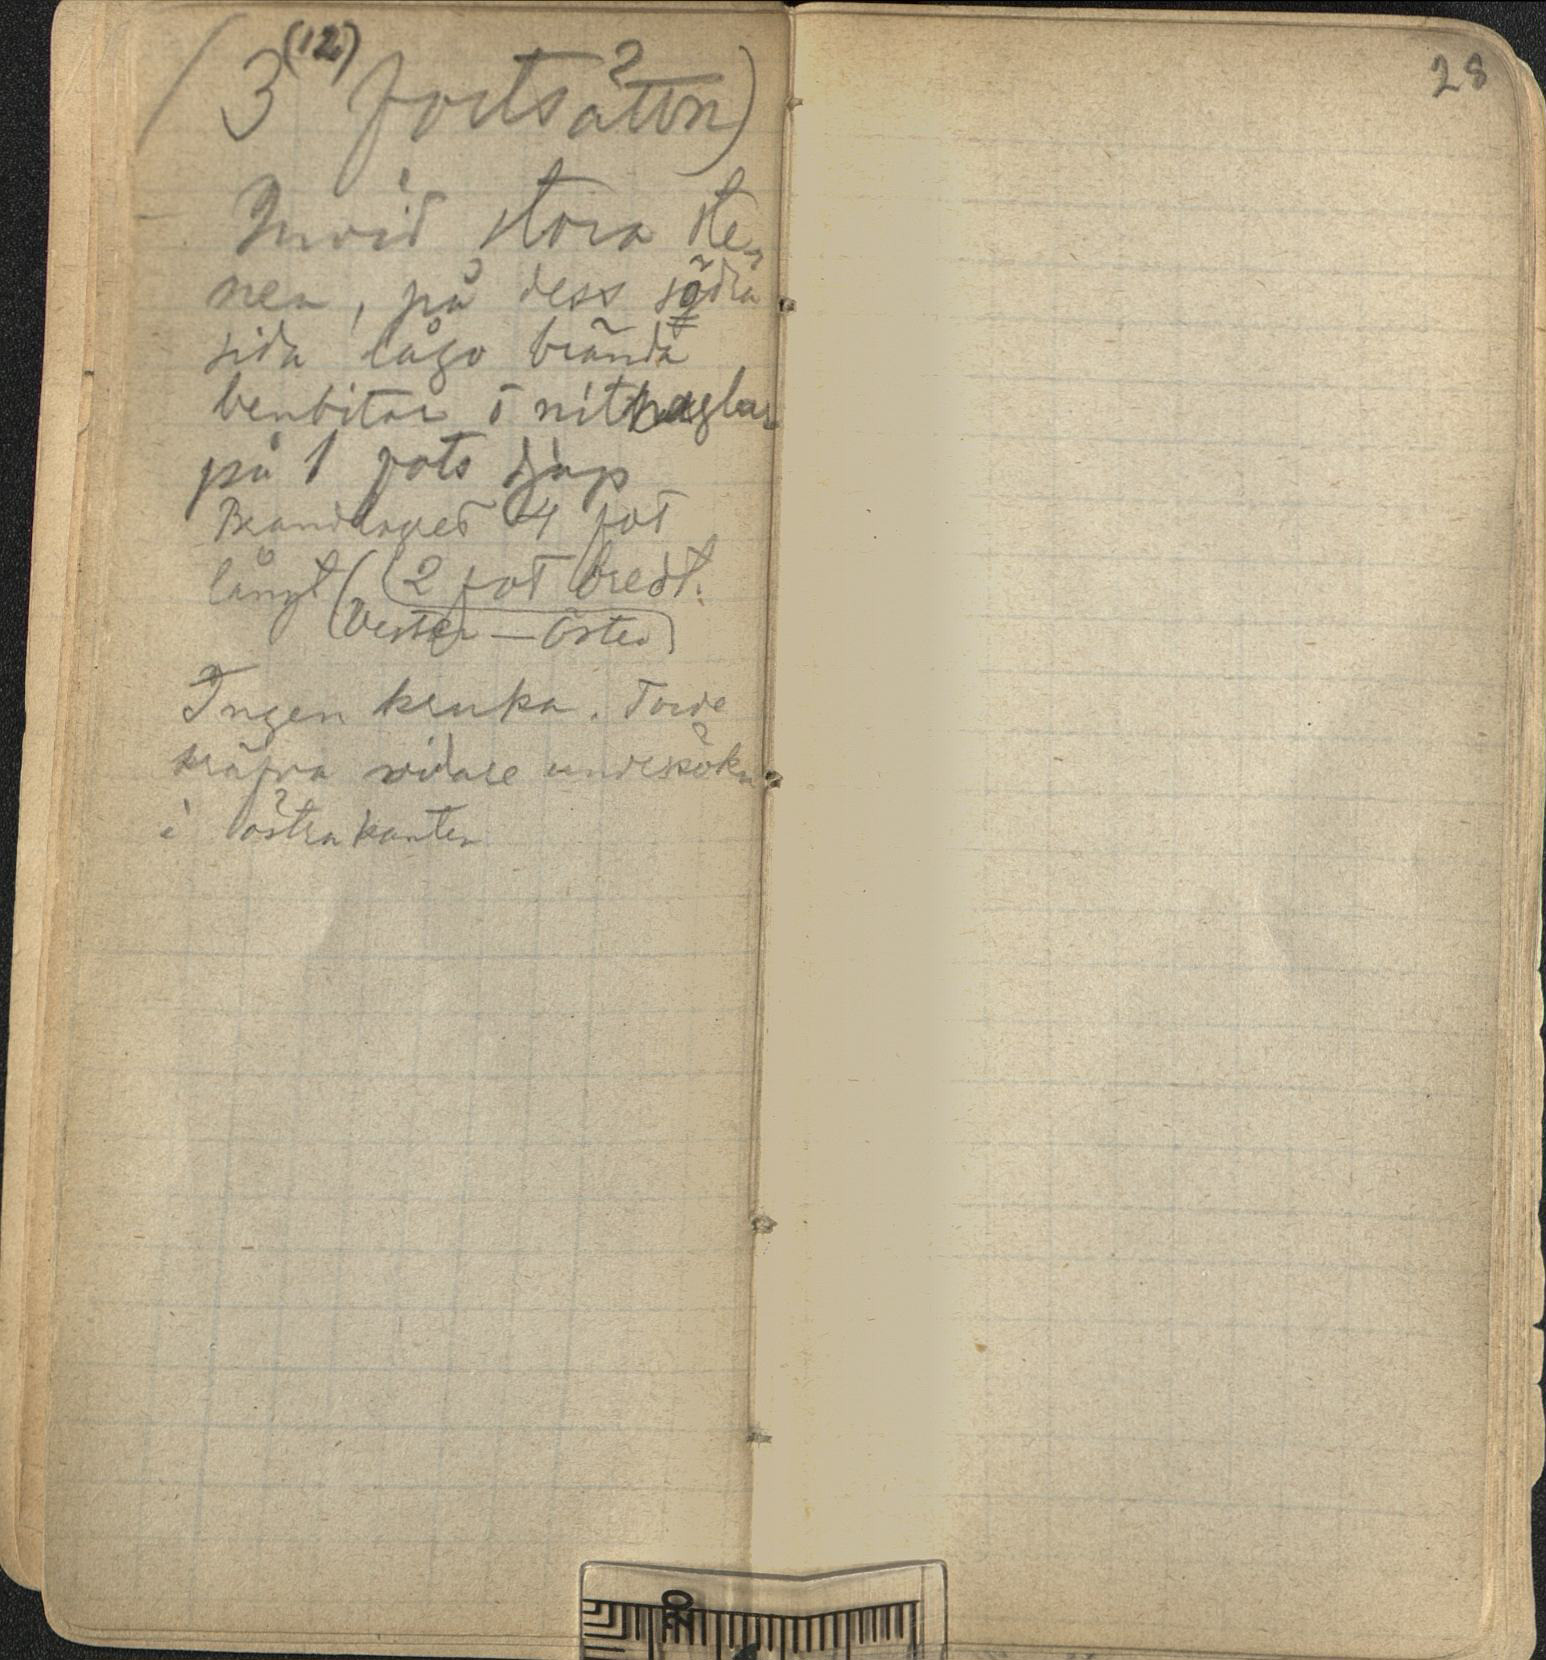 (3 (12) fortsättn)
Invid stora ste-
nen, på dess södra
sida lågo brända
benbitar o nitnaglar
på 1 fots djup
Brandlagret 4 fot
långt (2 fot bredt.
(Vester — Öster)
Ingen kruka. Torde
kräfva vidare undersökn
i östra kanten
28
20